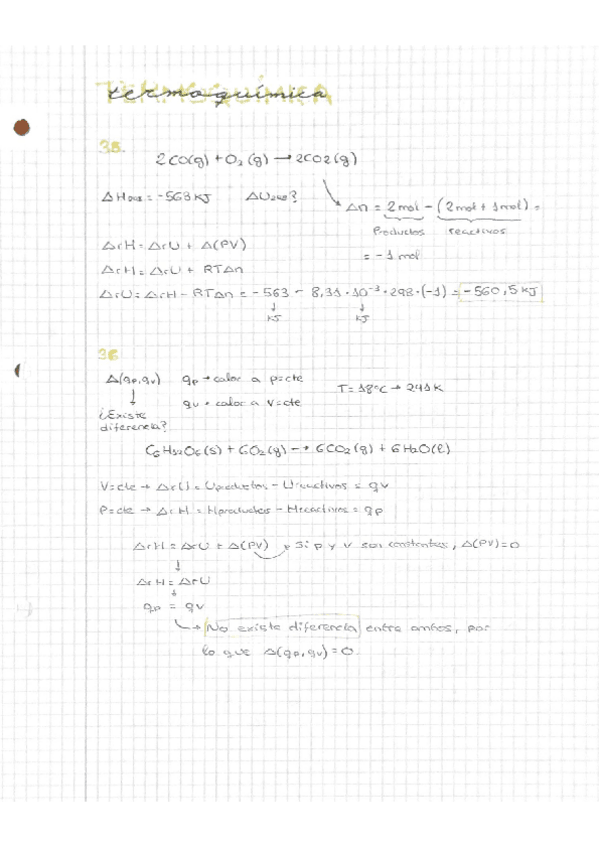 termoquímica
35.
2CO(g) + O₂(g) → 2CO2(g)
ΔH₂₉₈ = -563 KJ ΔU₂₉₈? Δn = 2mol - (2mol + 1mol) =
Productos reactivos
= -1 mol
ΔrH = ΔrU + Δ(PV)
ΔrH = ΔrU + RTΔn
ΔrU = ΔrH - RTΔn = -563 - 8,31·10⁻³·298·(-1) = -560,5 KJ
↓ ↓
KJ KJ
36
Δ(qp,qv) qp → calor a p=cte T = 18ºC → 291K
↓ qv → calor a V=cte
¿Existe
diferencia?
C₆H₁₂O₆(s) + 6O₂(g) → 6CO₂(g) + 6H₂O(l)
V=cte → ΔrU = Uproductos - Ureactivos = qv
P=cte → ΔrH = Hproductos - Hreactivos = qp
ΔrH = ΔrU + Δ(PV) → Si p y v son constantes, Δ(PV)=0
↓
ΔrH = ΔrU
↓
qp = qv
↳ No existe diferencia entre ambos, por
lo que Δ(qp,qv) = 0.